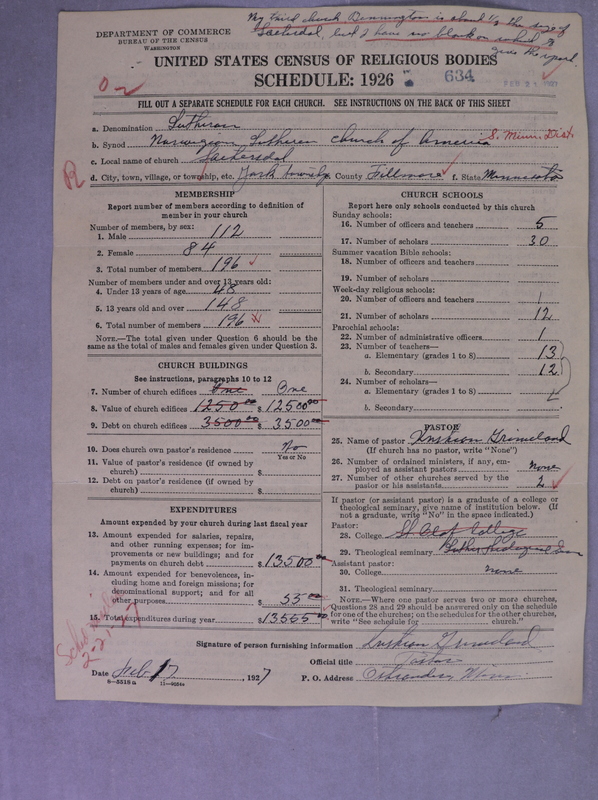 My third church Bennington is about 1/3 the size of
Saetersdal, but I have no blank on which to
give the report.
DEPARTMENT OF COMMERCE
BUREAU OF THE CENSUS
WASHINGTON
UNITED STATES CENSUS OF RELIGIOUS BODIES
SCHEDULE: 1926
634
FILL OUT A SEPARATE SCHEDULE FOR EACH CHURCH. SEE INSTRUCTIONS ON THE BACK OF THIS SHEET
a. Denomination Lutheran
b. Synod Norwegian Lutheran church of America S. Minn. Dist.
c. Local name of church Saetersdal
d. City, town, village, or township, etc. York township County Fillmore f. State Minnesota
MEMBERSHIP
Report number of members according to definition of
member in your church
Number of members, by sex:
1. Male 112
2. Female 84
3. Total number of members 196
Number of members under and over 13 years old:
4. Under 13 years of age 48
5. 13 years old and over 148
6. Total number of members 196
NOTE.—The total given under Question 6 should be
the same as the total of males and females given under Question 3.
CHURCH BUILDINGS
See instructions, paragraphs 10 to 12
7. Number of church edifices One One
8. Value of church edifices 1250 00 $ 12500 00
9. Debt on church edifices 3500 00 $ 3500
10. Does church own pastor's residence? No
Yes or No
11. Value of pastor's residence (if owned by
church) $
12. Debt on pastor's residence (if owned by
church) $
EXPENDITURES
Amount expended by your church during last fiscal year
13. Amount expended for salaries, repairs,
and other running expenses; for im-
provements or new buildings; and for
payments on church debt $ 13500
14. Amount expended for benevolences, in-
cluding home and foreign missions; for
denominational support; and for all
other purposes $ 55 00
15. Total expenditures during year $ 13555
CHURCH SCHOOLS
Report here only schools conducted by this church
Sunday schools:
16. Number of officers and teachers 5
17. Number of scholars 30
Summer vacation Bible schools:
18. Number of officers and teachers
19. Number of scholars
Week-day religious schools:
20. Number of officers and teachers 1
21. Number of scholars 12
Parochial schools:
22. Number of administrative officers 1
23. Number of teachers—
a. Elementary (grades 1 to 8) 13
b. Secondary 12
24. Number of scholars—
a. Elementary (grades 1 to 8)
b. Secondary
PASTOR
25. Name of pastor Kristian Grimeland
(If church has no pastor, write "None")
26. Number of ordained ministers, if any, em-
ployed as assistant pastors none
27. Number of other churches served by the
pastor or his assistants 2
If pastor (or assistant pastor) is a graduate of a college or
theological seminary, give name of institution below. (If
not a graduate, write "No" in the space indicated.)
Pastor:
28. College St. Olaf College
29. Theological seminary Luther theological Sem
Assistant pastor:
30. College none
31. Theological seminary
NOTE.—Where one pastor serves two or more churches,
Questions 28 and 29 should be answered only on the schedule
for one of the churches; on the schedules for the other churches,
write "See schedule for church."
Signature of person furnishing information Kristian Grimeland
Official title Pastor
Date Feb 17, 1927
P. O. Address Ostrander, Minn.
8—5318a